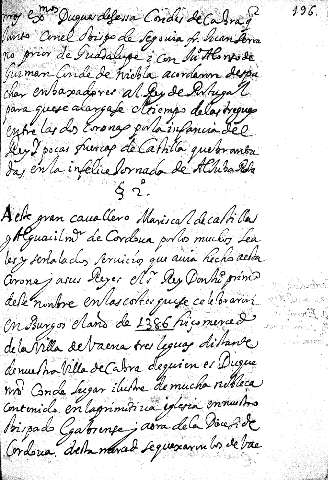 196.
mos Exmos Duques de sessa Condes de Cabra q.
junto con el obispo de segovia fr. Juan Serra
no prior de Guadalupe i con Ju.º Alonso de
Guzman Conde de Niebla acordaron despa
char embaxadores al Rey de Portugal
para que se alargase el tiempo de las treguas
entre las dos coronas por la infancia del
Rey i pocas fuerças de Castilla quebranta
das en la infelice Jornada de Aljubarrota
§ 2º.
A este gran cavallero Mariscal de castilla
y Alguacil mr. de Cordova por los muchos lea
les y señalados servicios que avia hecho a esta
corona y a sus Reyes el sr. Rey Don Ju.º primº
deste nombre en las cortes que se celebraron
en Burgos el año de 1386 hiço merced
de la Villa de Vaena tres leguas distante
de nuestra Villa de Cabra de quien es Duque
nro. Conde lugar ilustre de mucha nobleça
contenida en la primitiva iglesia en nuestro
obispado Egabrense y aora de la Dioc. de
Cordova. desta merced se quexaron los de Vae